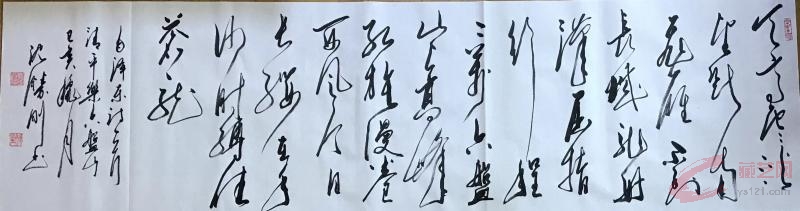 天高云淡
望断南
飞雁不到
长城非好
汉屈指
行程
二万六盘
山上高峰
红旗漫卷
西风今日
长缨在手
何时缚住
苍龙
毛泽东词
清平樂六盘山
月
刚书
ys121.com